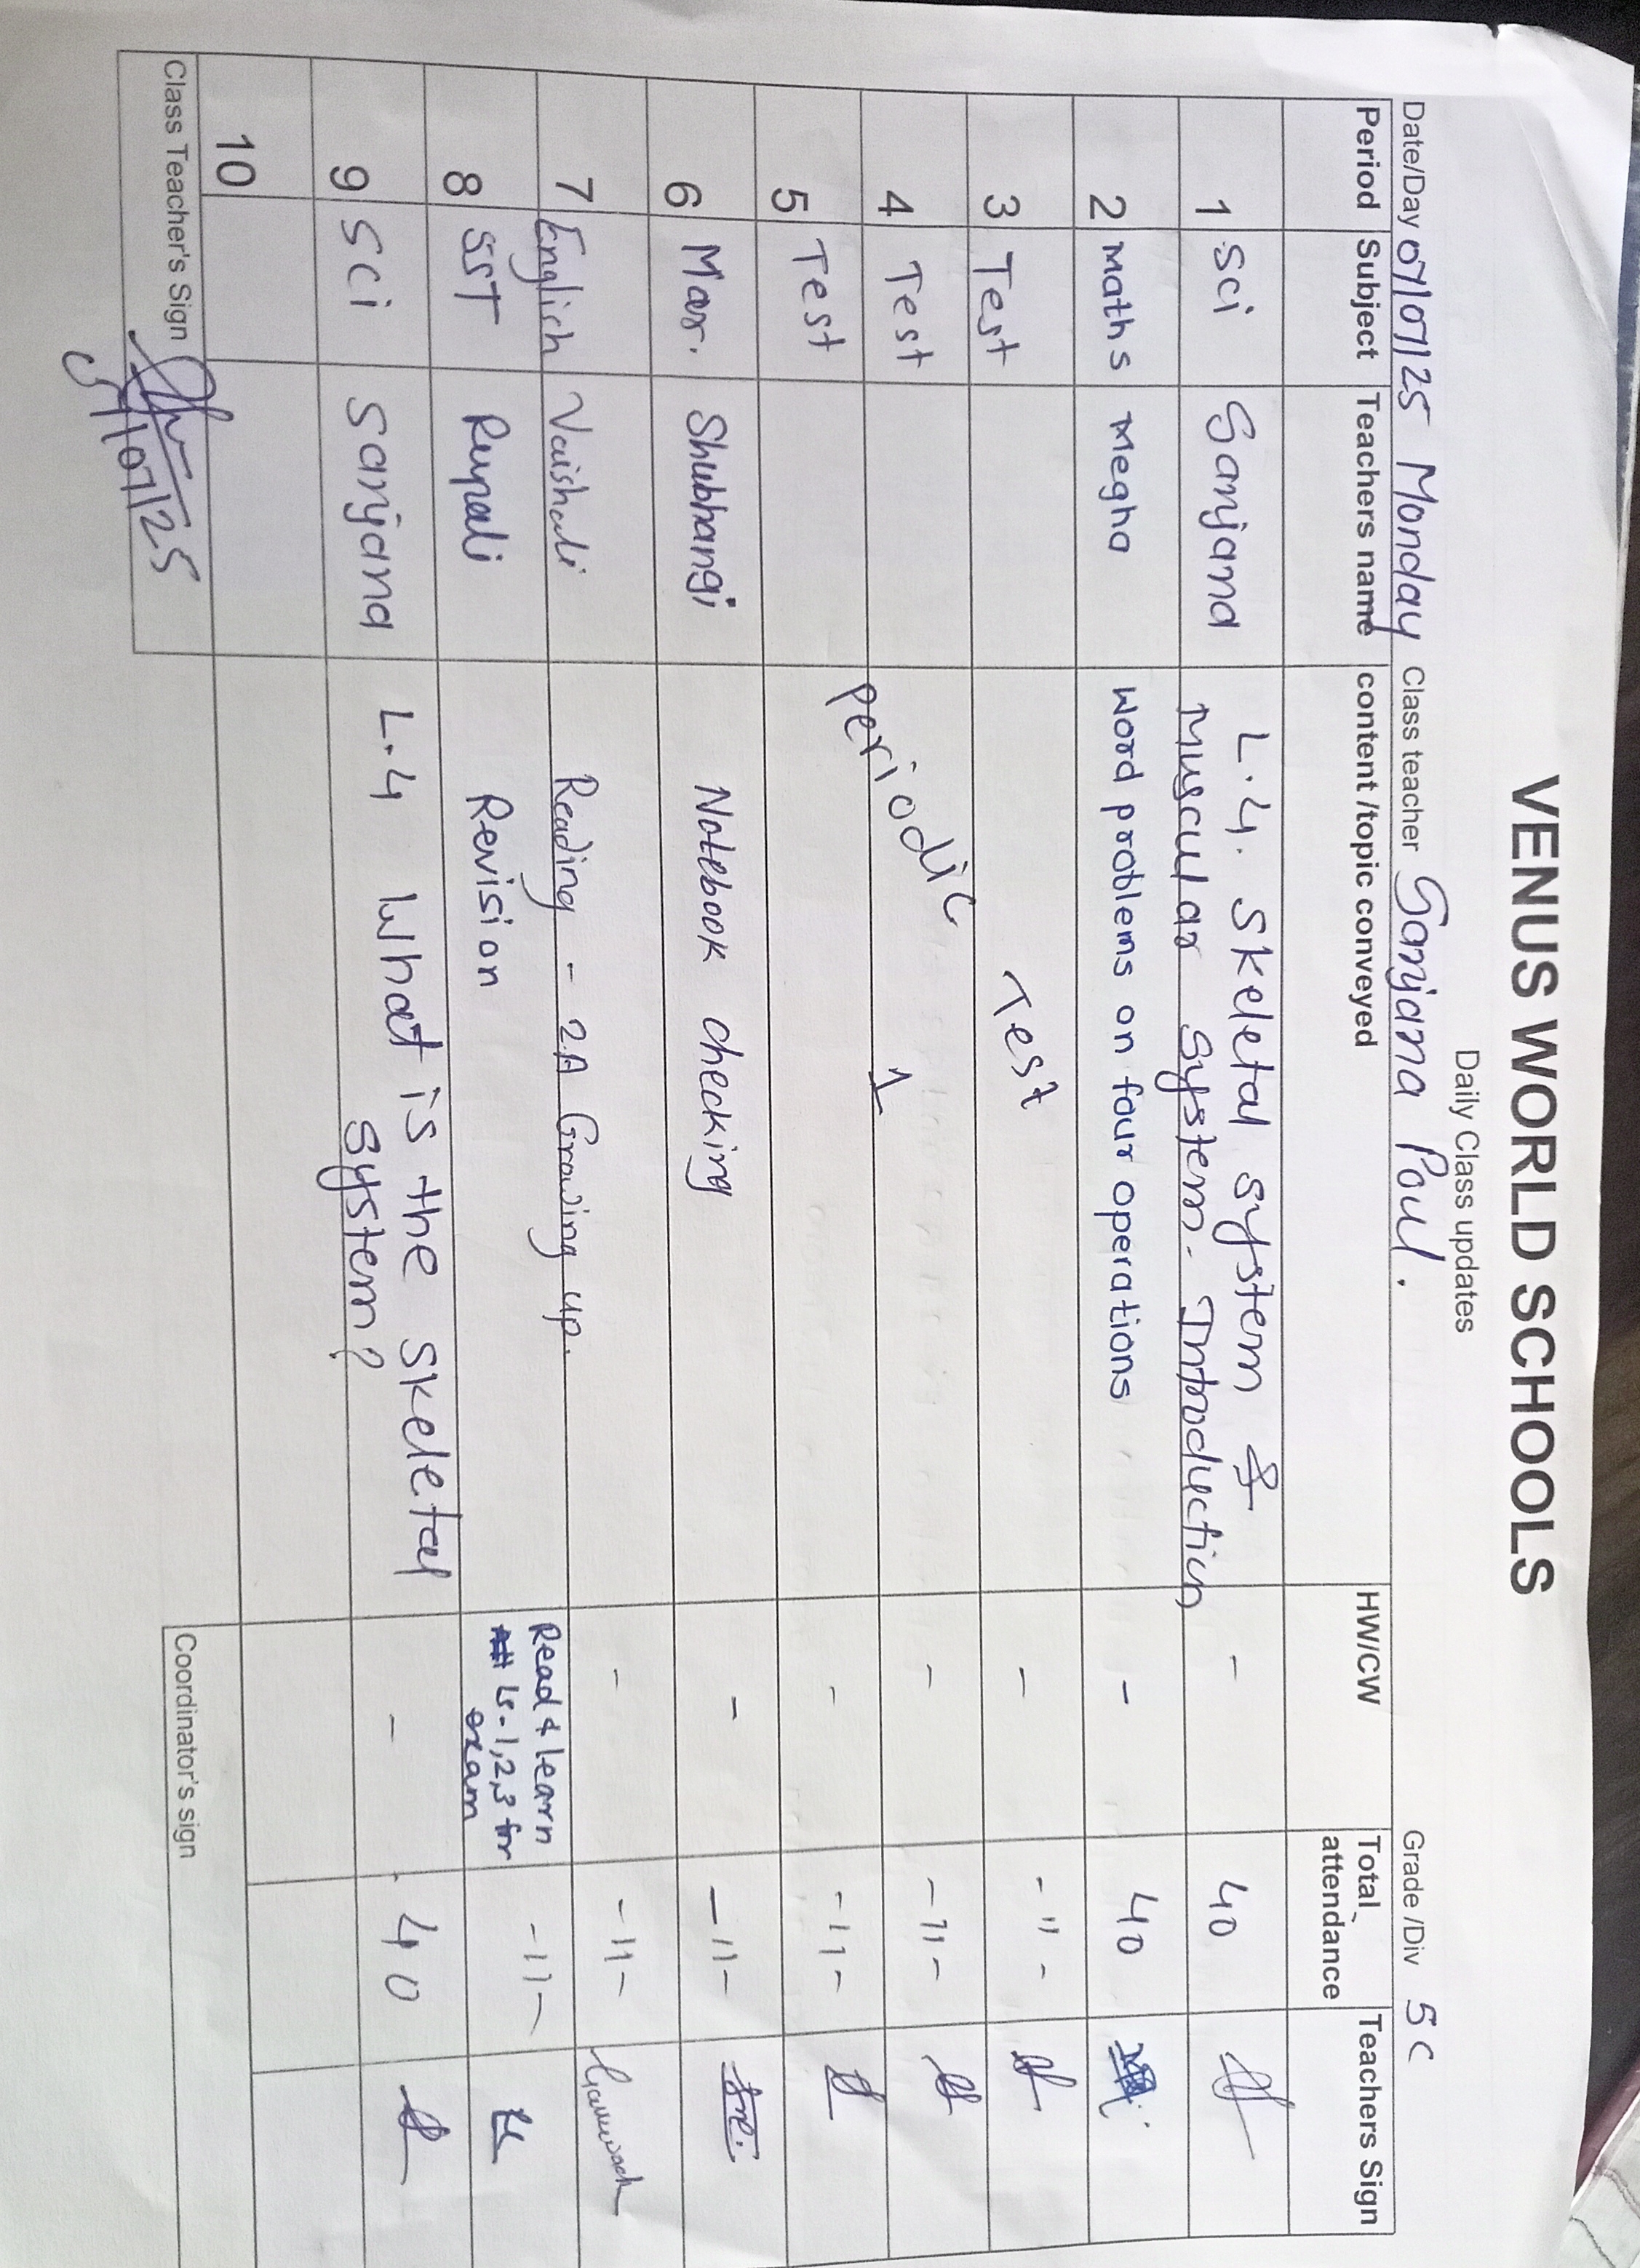 VENUS WORLD SCHOOLS
Daily Class updates
Date/Day 07/07/25 Monday Class teacher Sanjana Paul. Grade /Div 5C
Period Subject Teachers name content /topic conveyed HW/CW Total attendance Teachers Sign
1 Sci Sanjana L.4. Skeletal system & - 40
Muscular System- Introduction
2 Maths Megha Word problems on four operations - 40
3 Test Test - -"-
4 Test Periodic 1 - -11-
5 Test - -11-
6 Mar. Shubhangi Notebook checking - -11-
7 English Vaishali Reading - 2A Growing up. - -11-
8 SST Rupali Revision Read & learn -11-
Ls-1,2,3 for
exam
9 Sci Sanjana L.4 What is the skeletal - 40
system?
10
Class Teacher's Sign
Coordinator's sign